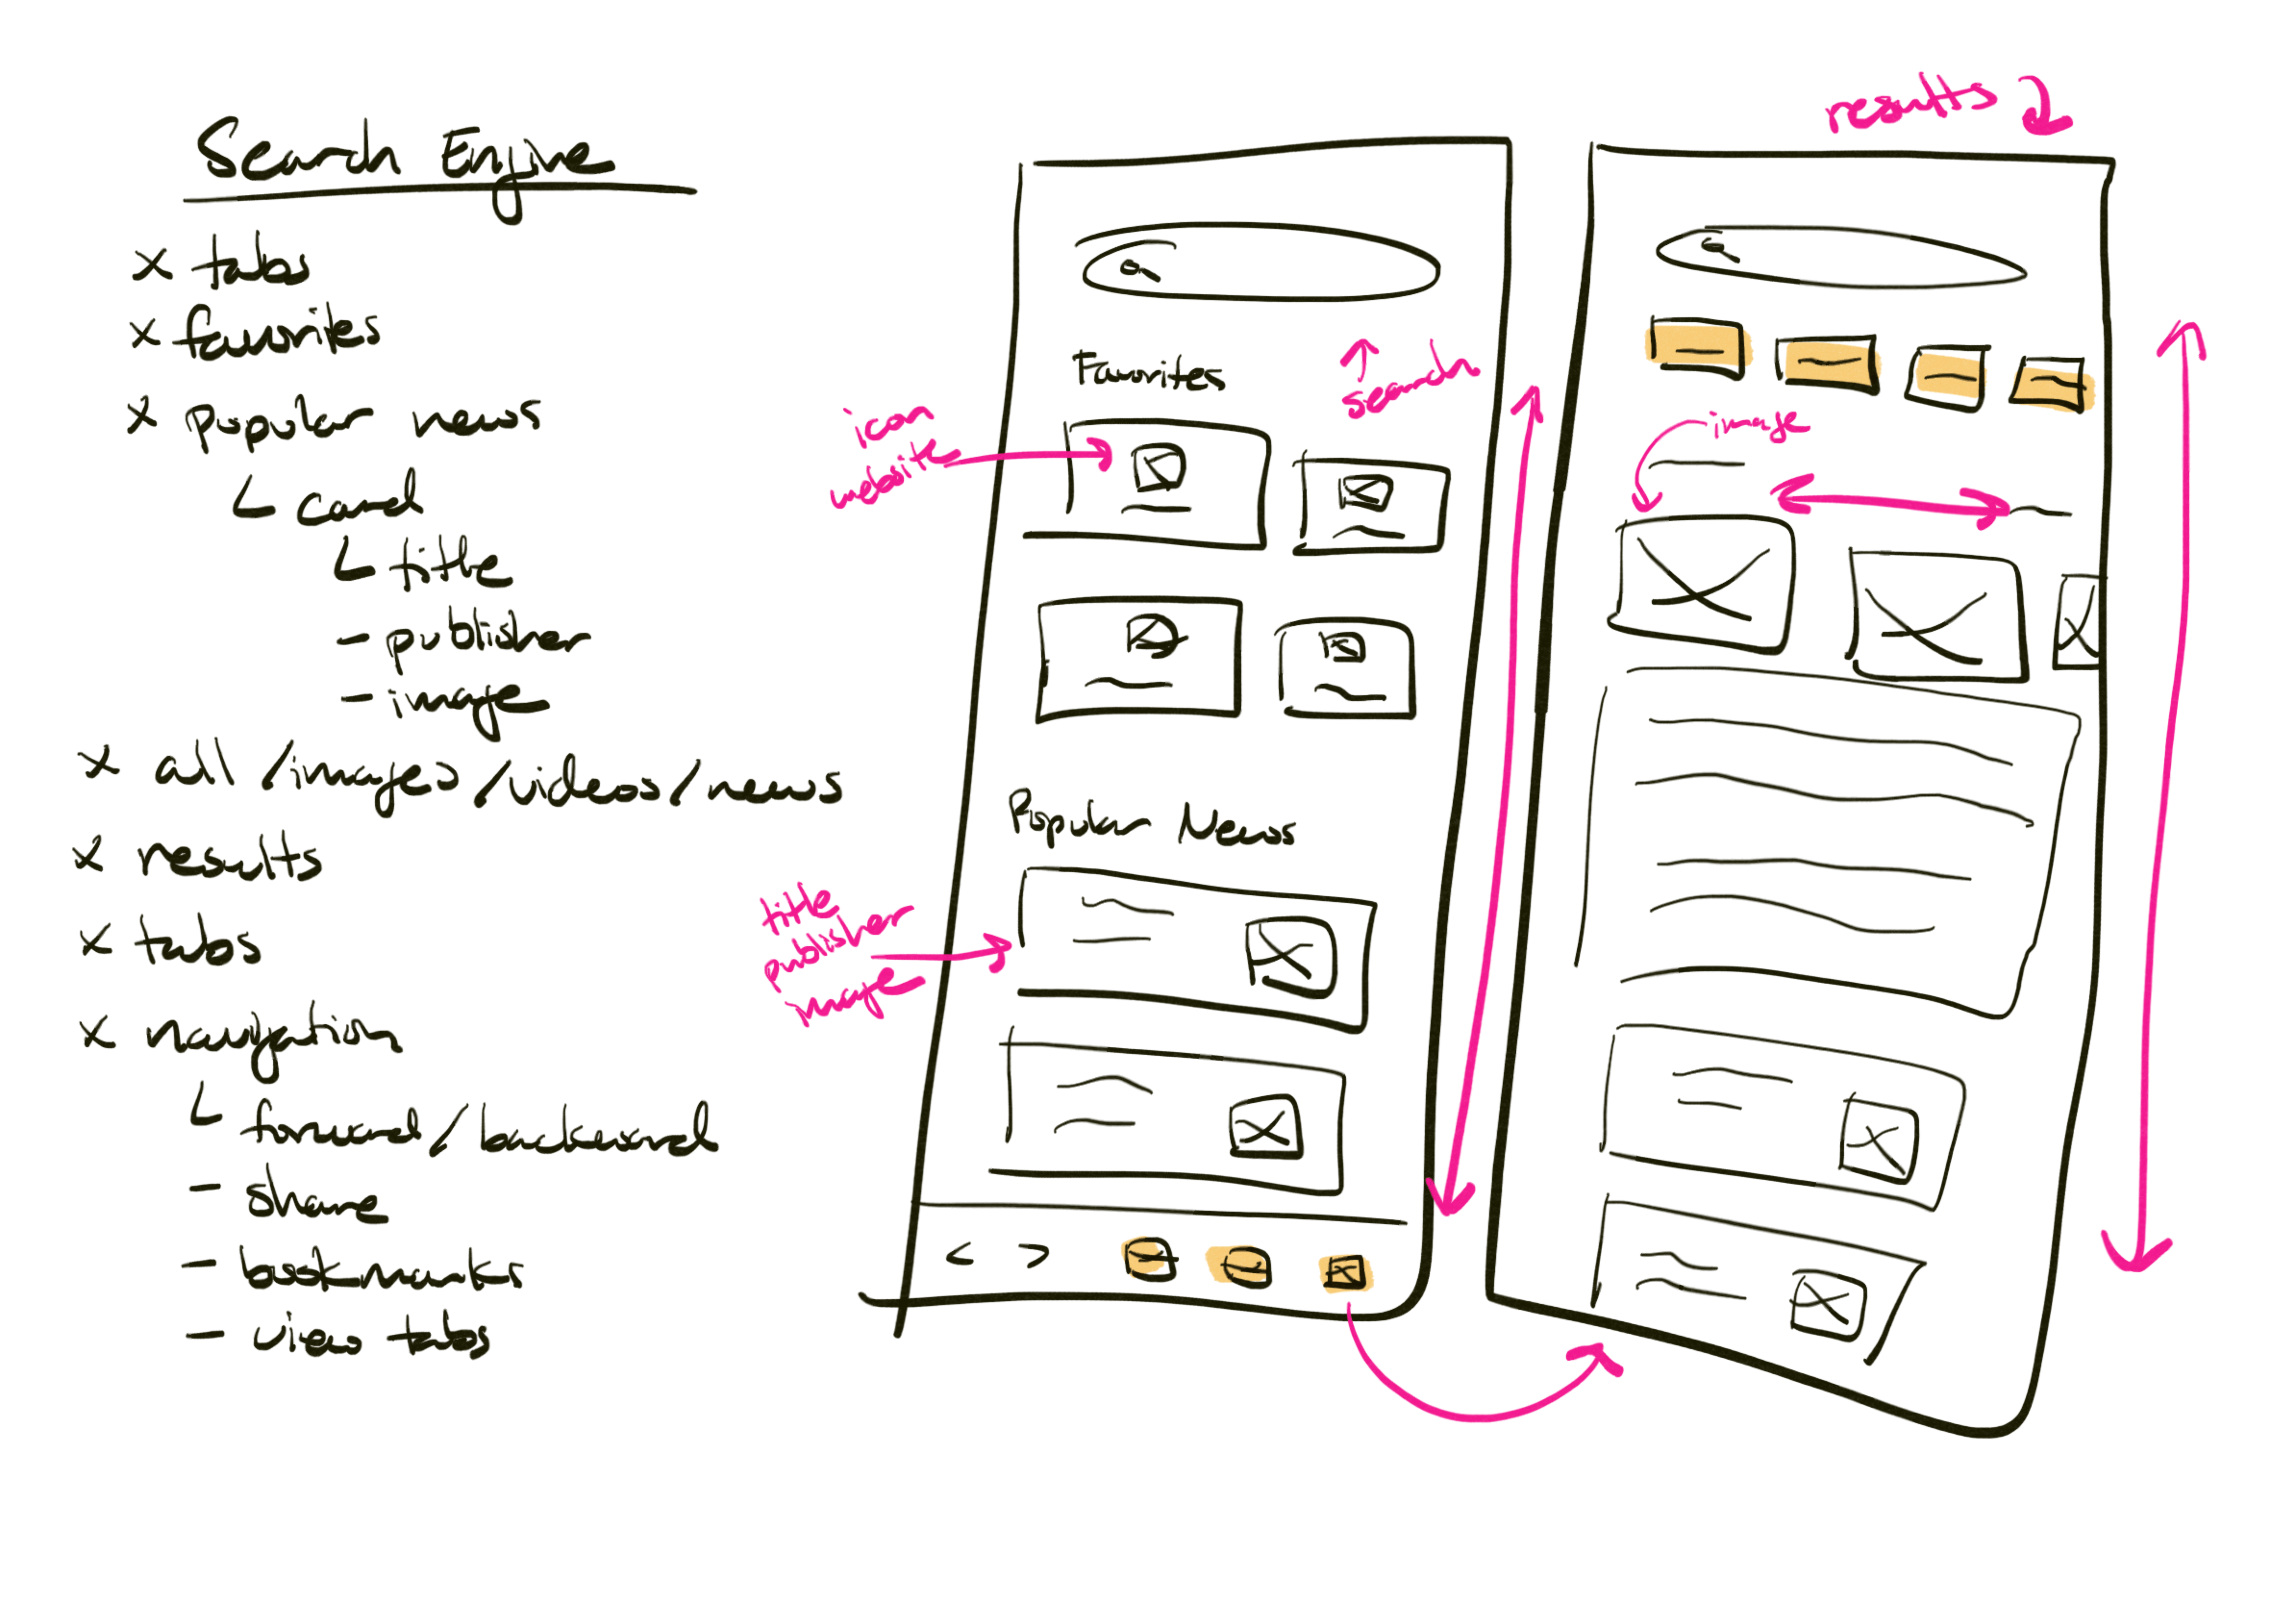 Search Engine
x tabs
x favorites
x popular news
card
title
- publisher
- image
x all/images/videos/news
x results
x tabs
x navigation
forward/backward
- share
- bookmarks
- view tabs
Favorites
search
icon
website
Popular News
title
publisher
image
< >
results
image